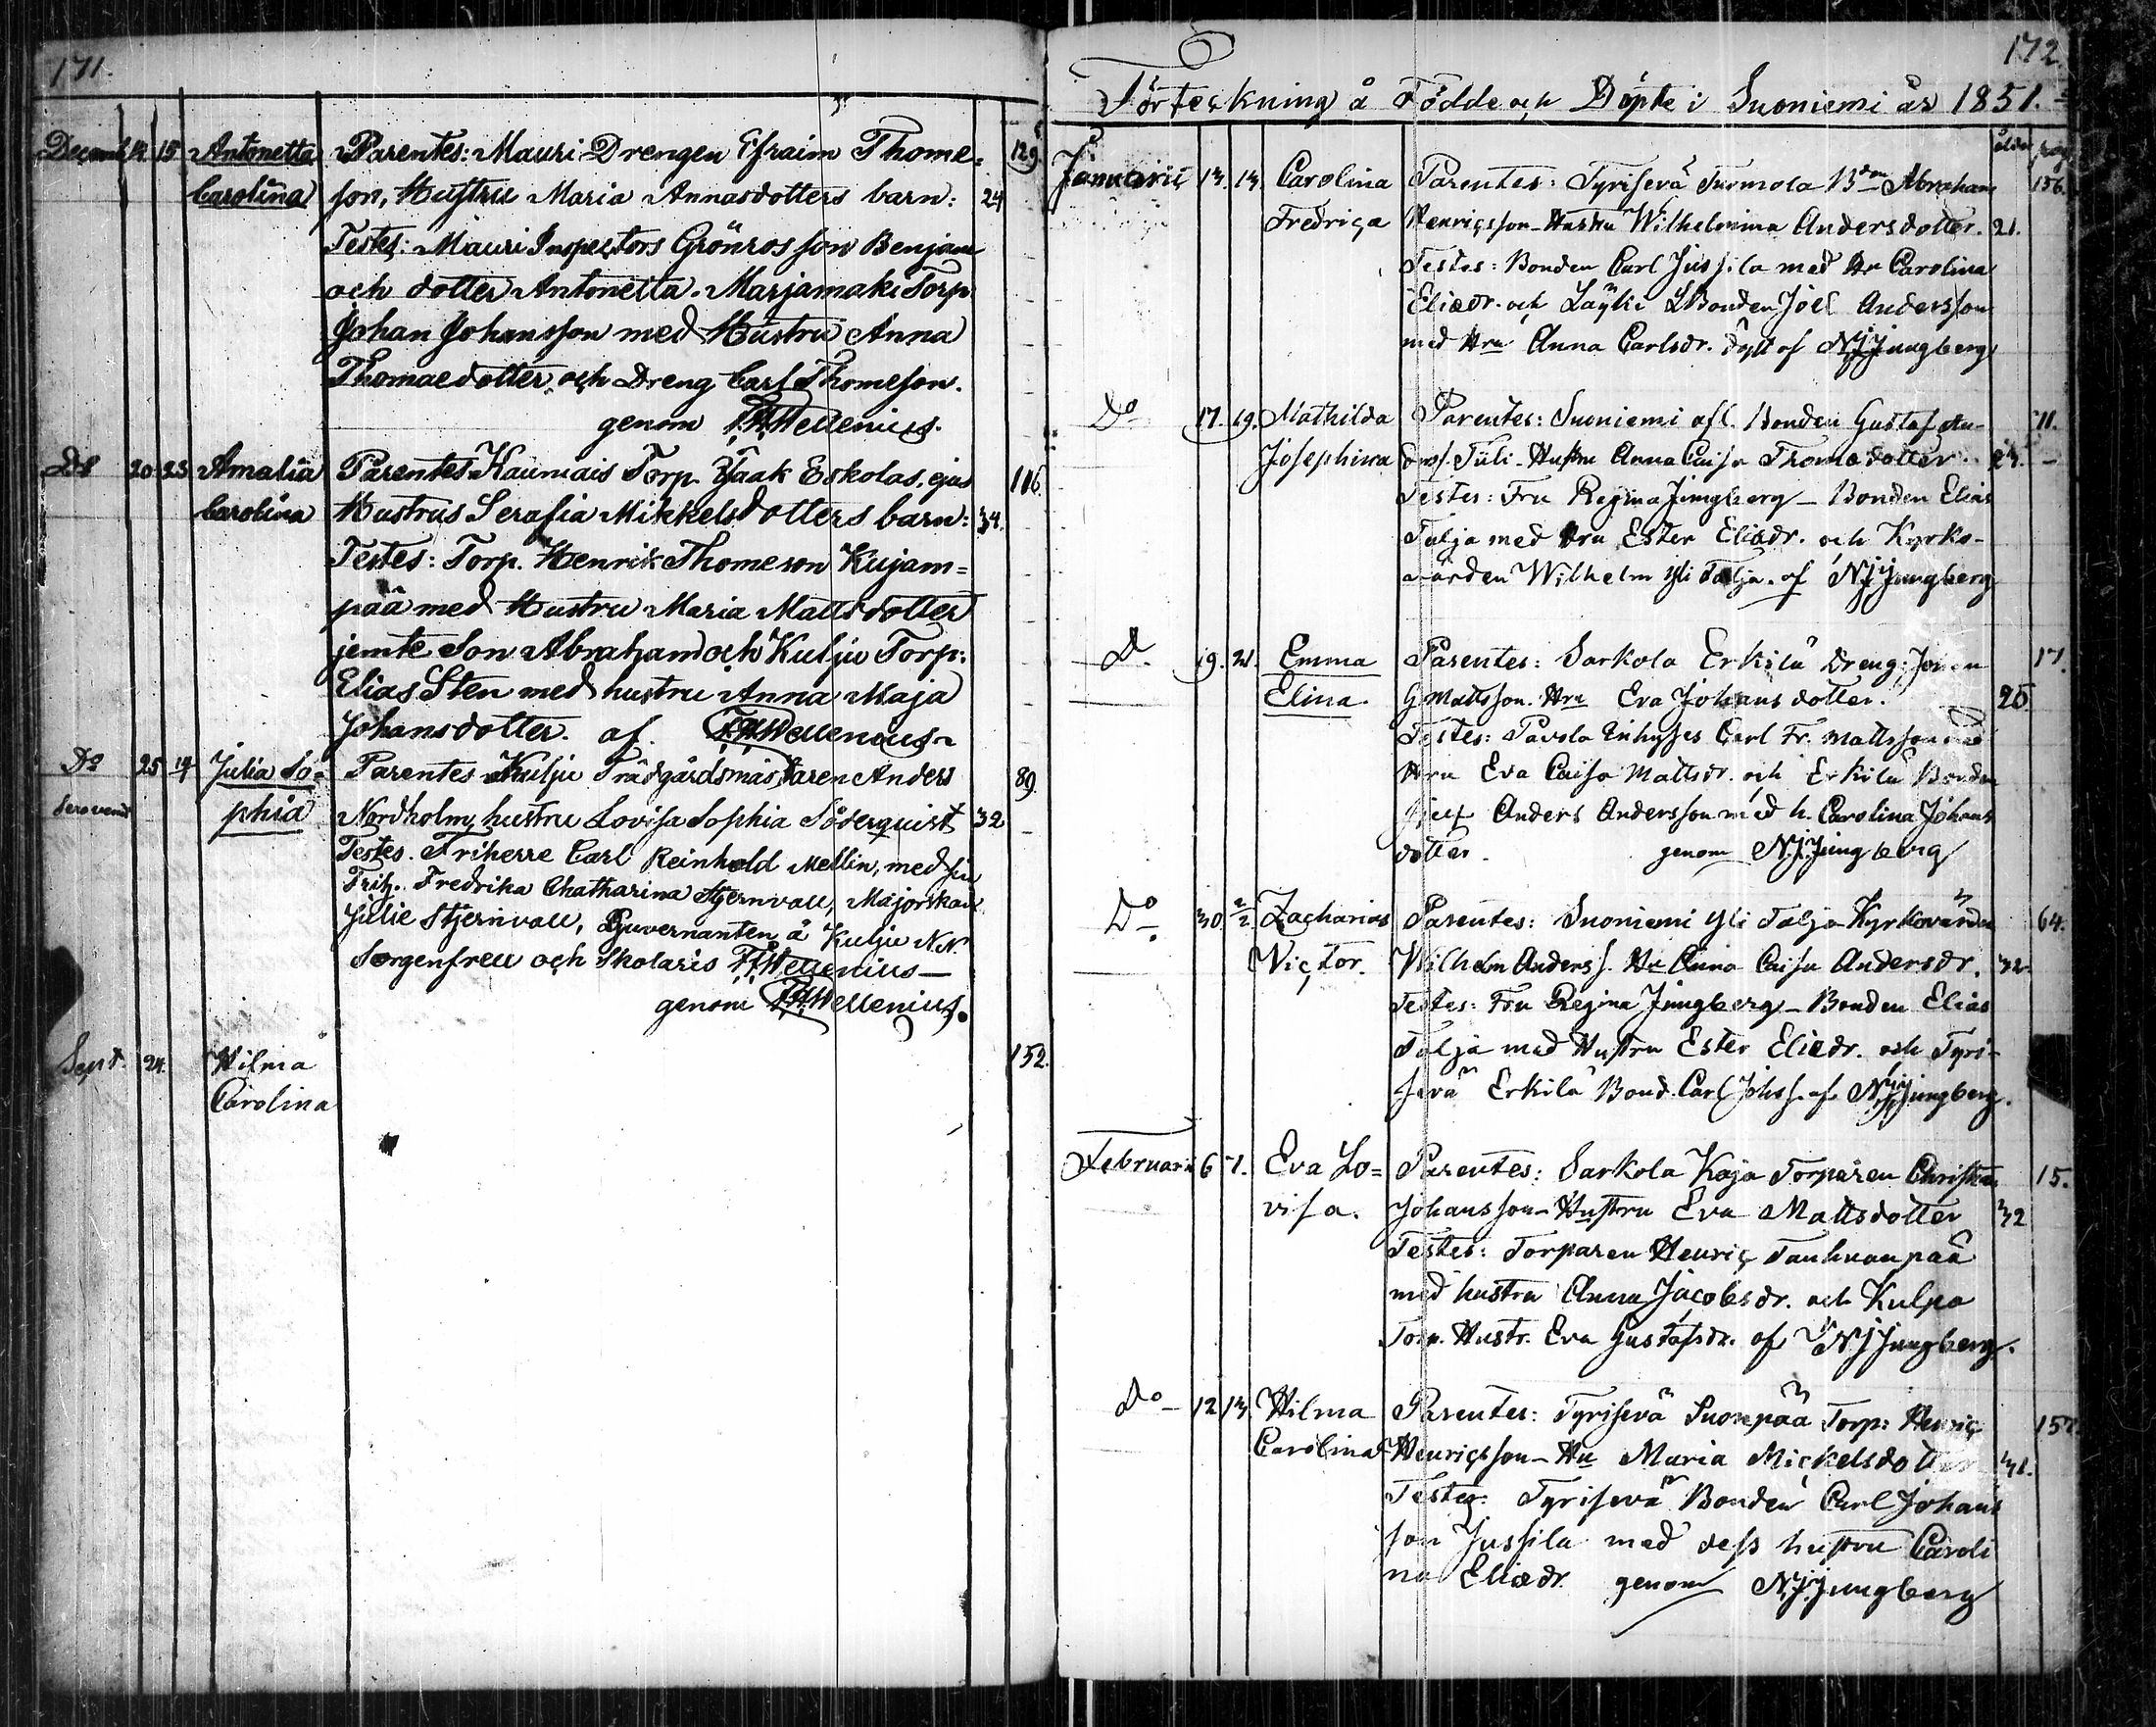 171.
Decemb 14 15 Antonetta Parentes: Mauri Drengen Efraim Thome= 129.
Carolina son, Hustru Maria Annasdotters barn: 24
Testes: Mauri Inspectors Grönros son Benjam
och dotter Antonetta. Marjamaki Torp:
Johan Johansson med Hustru Anna
Thomaedotter och Dreng Carl Thomeson.
genom Wellenius.
Do 20 23 Amalia Parentes Kaumais Torp. Isaak Eskolas, ejus 116.
Carolina Hustrus Serafia Mikkelsdotters barn: 34.
Testes: Torp. Henrik Thomeson Kujam=
pää med Hustru Maria Mattsdotter
jemte Son Abraham och Kulju Torp:
Elias Sten med hustru Anna Maja
Johansdotter. af. Wellenius
Do 25 Julia So= Parentes Kulju Trädgårdsmästaren Anders 89.
phia Nordholm, hustru Lovisa Sophia Söderquist 32
Testes. Friherre Carl Reinhold Mellin, med sin
Frih. Fredrika Chatharina Stjernvall, Majorskan
Julie Stjernvall, Guvernanten å Kulju N.N.
Sorgenfreu och Skolaris Wellenius—
genom Wellenius.
Sept. 24. Hilma 152.
Carolina
172.
Förteckning å Födde och Döpte i Suoniemi år 1851.
ålder pag.
Januarii 13. 13. Carolina Parentes: Tyrisevä Tuomola Bden Abraham 156.
Fredrica Henricsson – Hustru Wilhelmina Andersdotter. 21.
Testes: Bonden Carl Jussila med Hu Carolina
Eliædr. och Läyki Bonden Joel Andersson
med Hru Anna Carlsdr. döpt af NJJungberg
Do 17. 19. Mathilda Parentes: Suoniemi afl. Bonden Gustaf An- 11.
Josephina ders. Tüli – Hustru Anna Caisa Thomædotter.
Testes: Fru Regina Jungberg – Bonden Elias
Talja med Hru Ester Eliædr. och Kyrko-
värden Wilhelm Yli Talja. af NJJungberg
D. 19. 21. Emma Parentes: Sarkola Erkilä Dreng: 17.
Elina. G Mattsson. Hru Eva Johansdotter. 20
Testes: Pavola Inhyses Carl Fr. Mattsson med
Hru Eva Caisa Mattsdr. och Erkilä Bonden
Anders Andersson med h. Carolina Johans
dotter. genom NJJungberg
Do 30. 2/2 Zacharias Parentes: Suoniemi Yli Talja Kyrkovärden 64.
Victor. Wilhelm Anders s. Hu Anna Caisa Andersdr. 32.
Testes: Fru Regina Jungberg – Bonden Elias
Talja med Hustru Ester Eliædr. och Tyri-
sevä Erkilä Bond. Carl Johss. af NJJungberg.
Februarii 6 7. Eva Lo= Parentes: Sarkola Koja Torparen Christian 15.
visa. Johansson – Hustru Eva Mattsdotter 32
Testes: Torparen Henric Tanhuanpää
med hustru Anna Jacobsdr. och Kulpo
Torp. Hustr. Eva Gustafsdr. af NJJungberg.
Do – 12 13. Hilma Parentes: Tyrisevä Suonpää Torp: Henric 152.
Carolina Henricsson – Hu Maria Mickelsdotter 31.
Testes: Tyrisevä Bonden Carl Johans
son Jussila med dess hustru Caroli
na Eliædr. genom NJJungberg